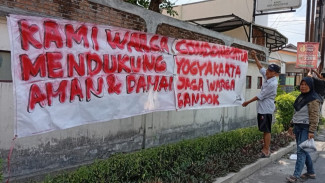 KAMI WARGA
MENDUKUNG
AMAN & DAMAI
CONDONGCATUR
YOGYAKARTA
JAGA WARGA
GANDOK